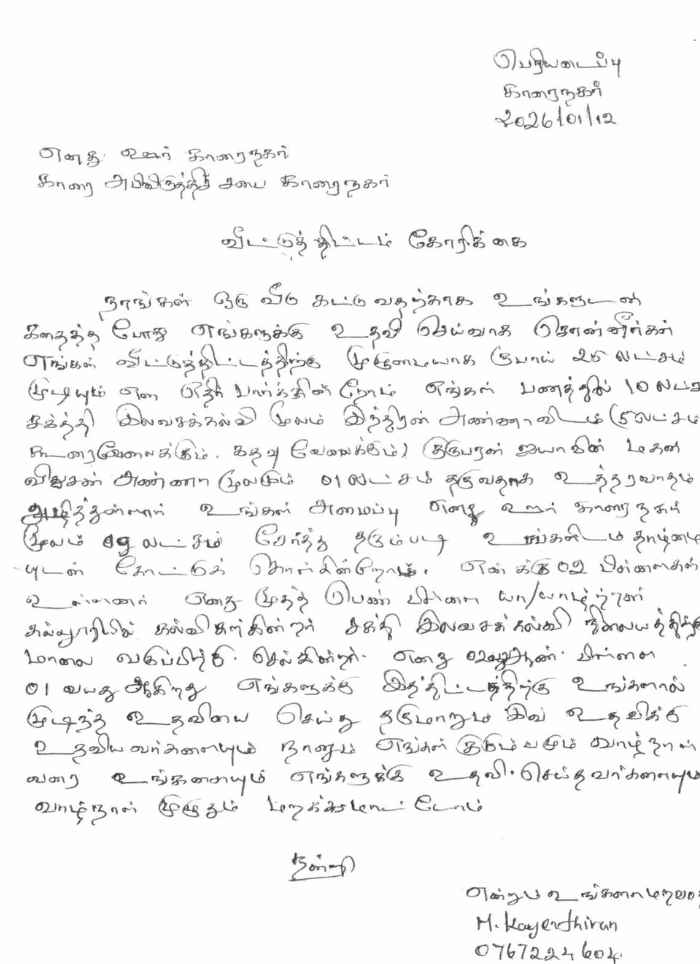 பெரியடைப்பு
காரைநகர்
2026/01/12
எனது ஊர் காரைநகர்
காரை அபிவிருத்தி சபை காரைநகர்
வீட்டுத்திட்டம் கோரிக்கை
நாங்கள் ஒரு வீடு கட்டுவதற்காக உங்களுடன்
கதைத்த போது எங்களுக்கு உதவி செய்வதாக சொன்னீர்கள்
எங்கள் வீட்டுத்திட்டத்திற்கு முழுமையாக ரூபாய் 25 லட்சம்
முடியும் என எதிர் பார்க்கின்றோம் எங்கள் பணத்தில் 10 லட்ச
சக்த்தி இலவசக்கல்வி மூலம் இந்திரன் அண்ணாவிடம் (5லட்சம்
கூரைவேலைக்கும். கதவு வேலைக்கும்) குருபரன் ஐயாவின் மகன்
விதுசன் அண்ணா மூலமும் 01 லட்சம் தருவதாக உத்தரவாதம்
அழித்துள்ளார் உங்கள் அமைப்பு எனது ஊர் காரைநகர்
மூலம் 09 லட்சம் சேர்த்து தரும்படி உங்களிடம் தாழ்மை
யுடன் கேட்டுக் கொள்கின்றோம். எனக்கு 02 பிள்ளைகள்
உள்ளனர் எனது முதற் பெண் பிள்ளை யா/யாழ்ற்றன்
கல்லூரியில் கல்வி கற்கின்றார் சக்தி இலவசக்கல்வி நிலையத்திற்கு
மாலை வகுப்பிற்கு செல்கின்றார். எனது 02வது ஆண். பிள்ளை
01 வயது ஆகிறது எங்களுக்கு இத்திட்டத்திற்கு உங்களால்
முடிந்த உதவியை செய்து தருமாறும் இவ் உதவிக்கு
உதவியவர்களையும் நானும் எங்கள் குடும்பமும் வாழ்நாள்
வரை உங்களையும் எங்களுக்கு உதவி செய்தவர்களையும்
வாழ்நாள் முழுதும் மறக்கமாட்டோம்
நன்றி
என்றும் உங்களைமறவாத
M. Kayenthiran
0767224604